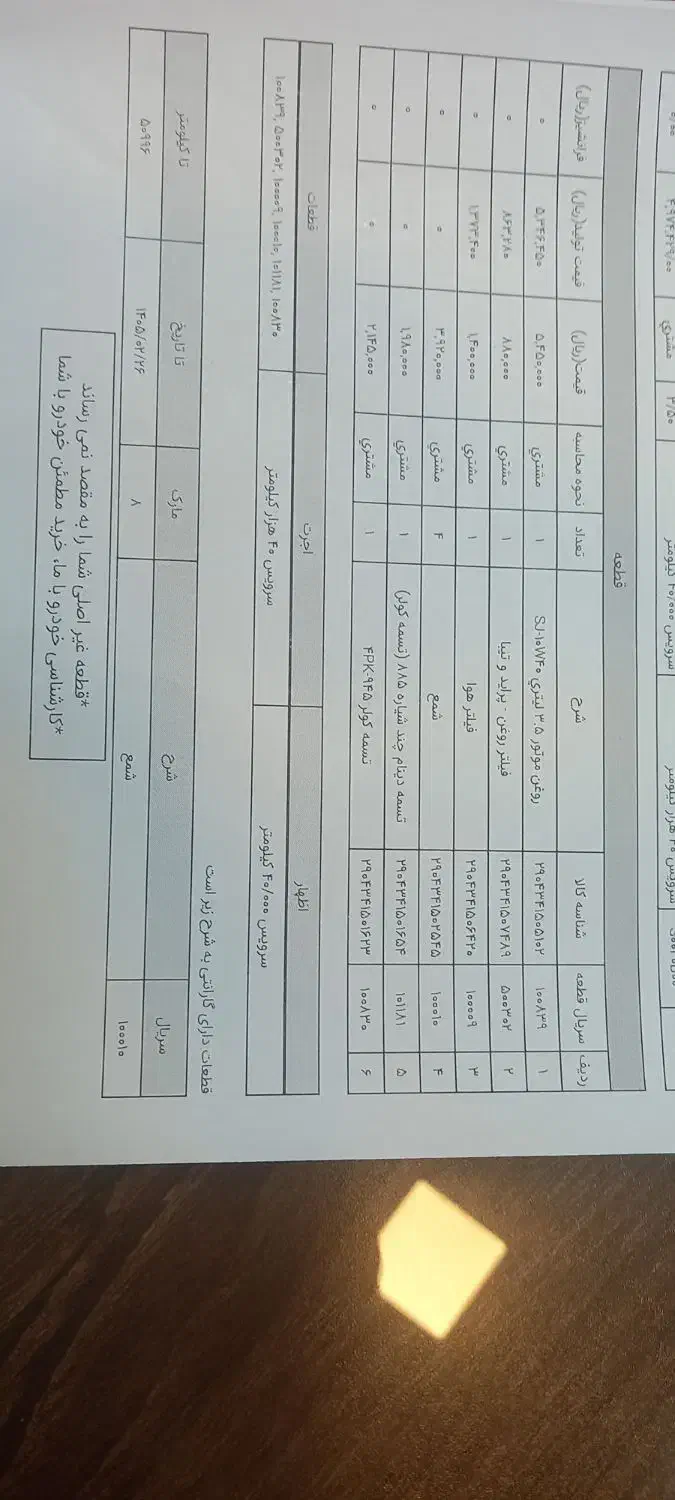 ۴,۹۷۴,۴۲۹/۰۰ مشتري ۲/۵۰
قطعه
ردیف سریال قطعه شناسه کالا شرح تعداد نحوه محاسبه قیمت(ریال) قیمت تولید(ریال) فرانشیز(ریال)
۱ ۱۰۰۸۳۹ ۲۹۰۴۳۴۱۵۰۵۱۰۲ روغن موتور ۳.۵ لیتري SJ-۱۰W۴۰ ۱ مشتري ۵,۴۵۰,۰۰۰ ۵,۳۴۶,۴۵۰ ۰
۲ ۵۰۰۳۰۲ ۲۹۰۴۳۴۱۵۰۷۴۸۹ فیلتر روغن - پراید و تیبا ۱ مشتري ۸۸۰,۰۰۰ ۸۶۳,۲۸۰ ۰
۳ ۱۰۰۰۰۹ ۲۹۰۴۳۴۱۵۰۶۴۲۰ فیلتر هوا ۱ مشتري ۱,۴۰۰,۰۰۰ ۱,۳۷۳,۴۰۰ ۰
۴ ۱۰۰۰۱۰ ۲۹۰۴۳۴۱۵۰۲۵۴۵ شمع ۴ مشتري ۳,۹۲۰,۰۰۰ ۰ ۰
۵ ۱۰۱۱۸۱ ۲۹۰۴۳۴۱۵۰۱۶۵۴ تسمه دینام چند شیاره ۸۸۵ (تسمه کولر) ۱ مشتري ۱,۹۸۰,۰۰۰ ۰ ۰
۶ ۱۰۰۸۳۰ ۲۹۰۴۳۴۱۵۰۱۶۲۳ تسمه کولر ۴PK-۹۴۵ ۱ مشتري ۲,۱۴۵,۰۰۰ ۰ ۰
اظهار اجرت قطعات
سرویس ۴۰/۰۰۰ کیلومتر سرویس ۴۰ هزار کیلومتر ۱۰۰۸۳۹, ۵۰۰۳۰۲, ۱۰۰۰۰۹, ۱۰۰۰۱۰, ۱۰۱۱۸۱, ۱۰۰۸۳۰
قطعات دارای گارانتی به شرح زیر است
سریال شرح مارک تا تاریخ تا کیلومتر
۱۰۰۰۱۰ شمع ۸ ۱۴۰۵/۰۲/۲۶ ۵۰۹۹۶
*قطعه غیر اصلی شما را به مقصد نمی رساند
*کارشناسی خودرو با ما، خرید مطمئن خودرو با شما